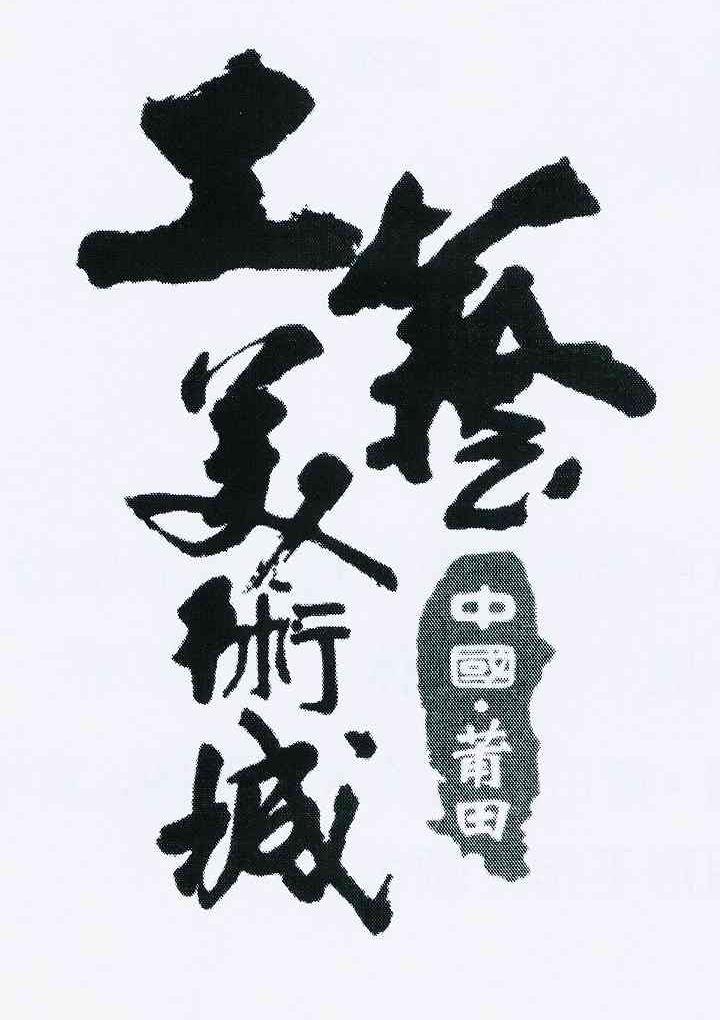 工藝
美術城
中國·莆田